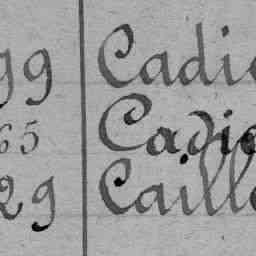 99 Cadi
65 Cadie
29 Caille